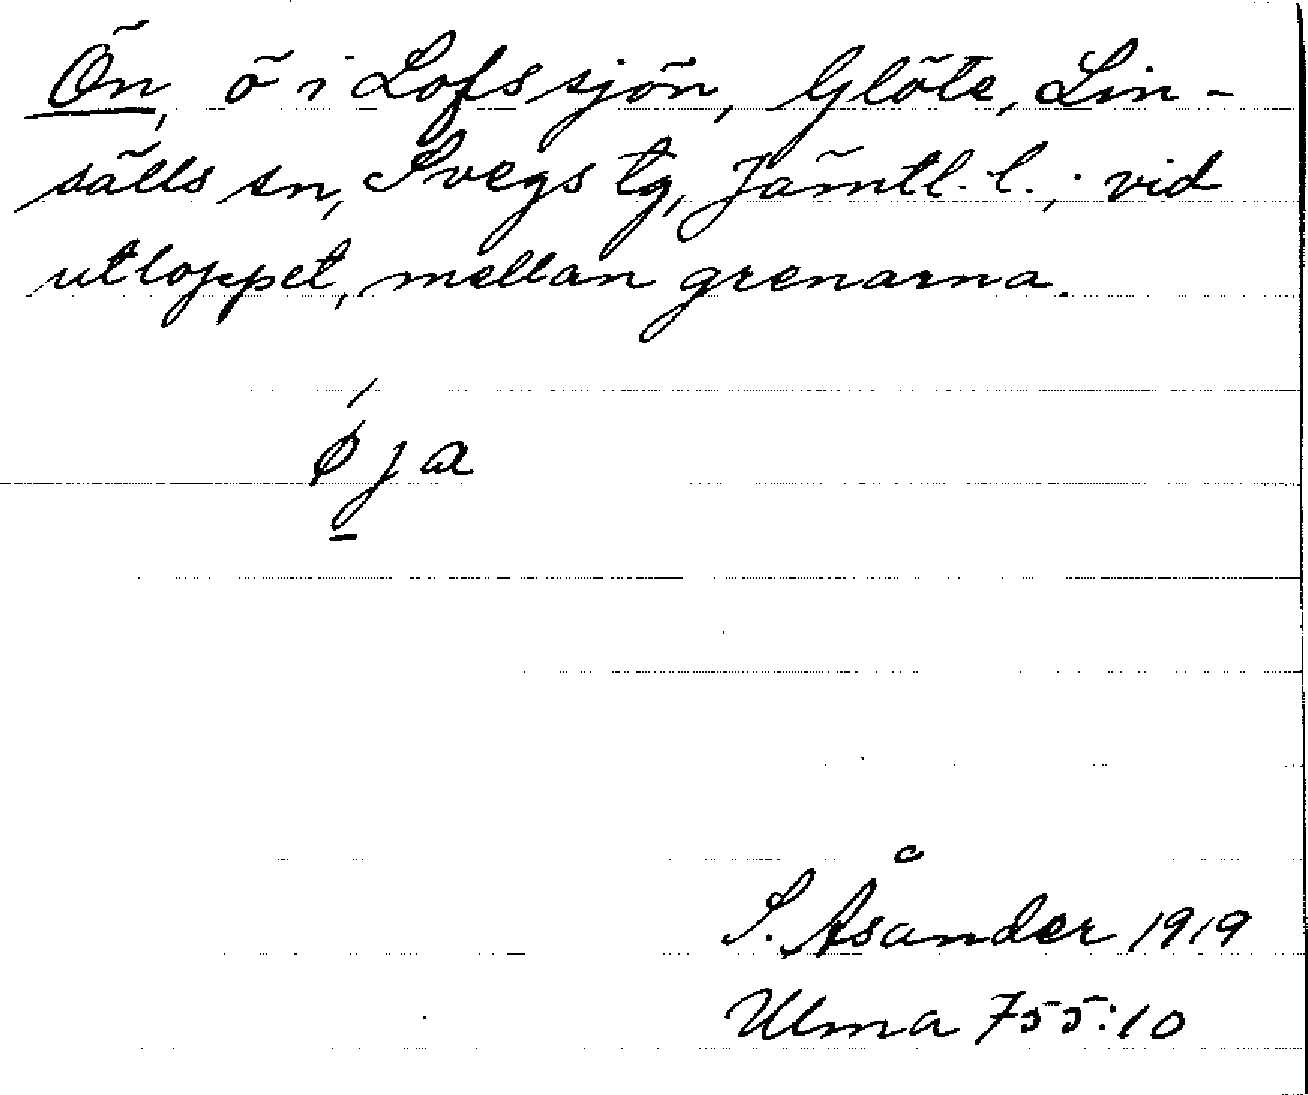 Ön, ö i Lofssjön, Glöte, Lin-
sälls sn, Svegs tg, Jämtl. l.; vid
utloppet, mellan grenarna.
ǿja
S. Åsander 1919
Ulma 755:10